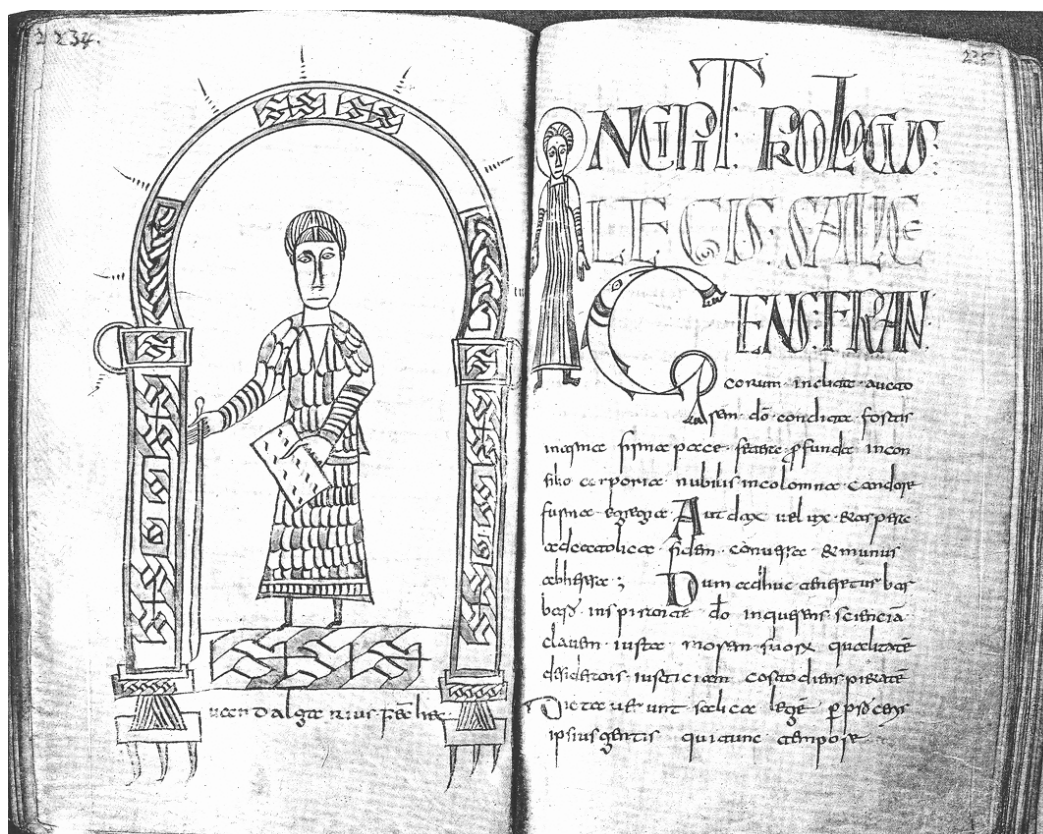 234.
uuandalgarius fec hec
235
INCIPIT PROLOGUS
LEGIS SALICE
GENS FRAN
corum inclita aucto
rem dō condita fortis
in arma firma pace fetera ꝓfunda in con
silio corporia nubilis incolomna candore
furma egregia Autdax uelux et aspera
ad catolica fidem conuersa et munus
ab heresa ; Dum adhuc teneretur bar
bar inspirante dō inquerens sciencia
clauem iusta morem suorum qualitatē
desiderans iusticiam costodiens pietatē
Dictauerunt salica legē ꝑ
ipsius gentis qui tunc tempore